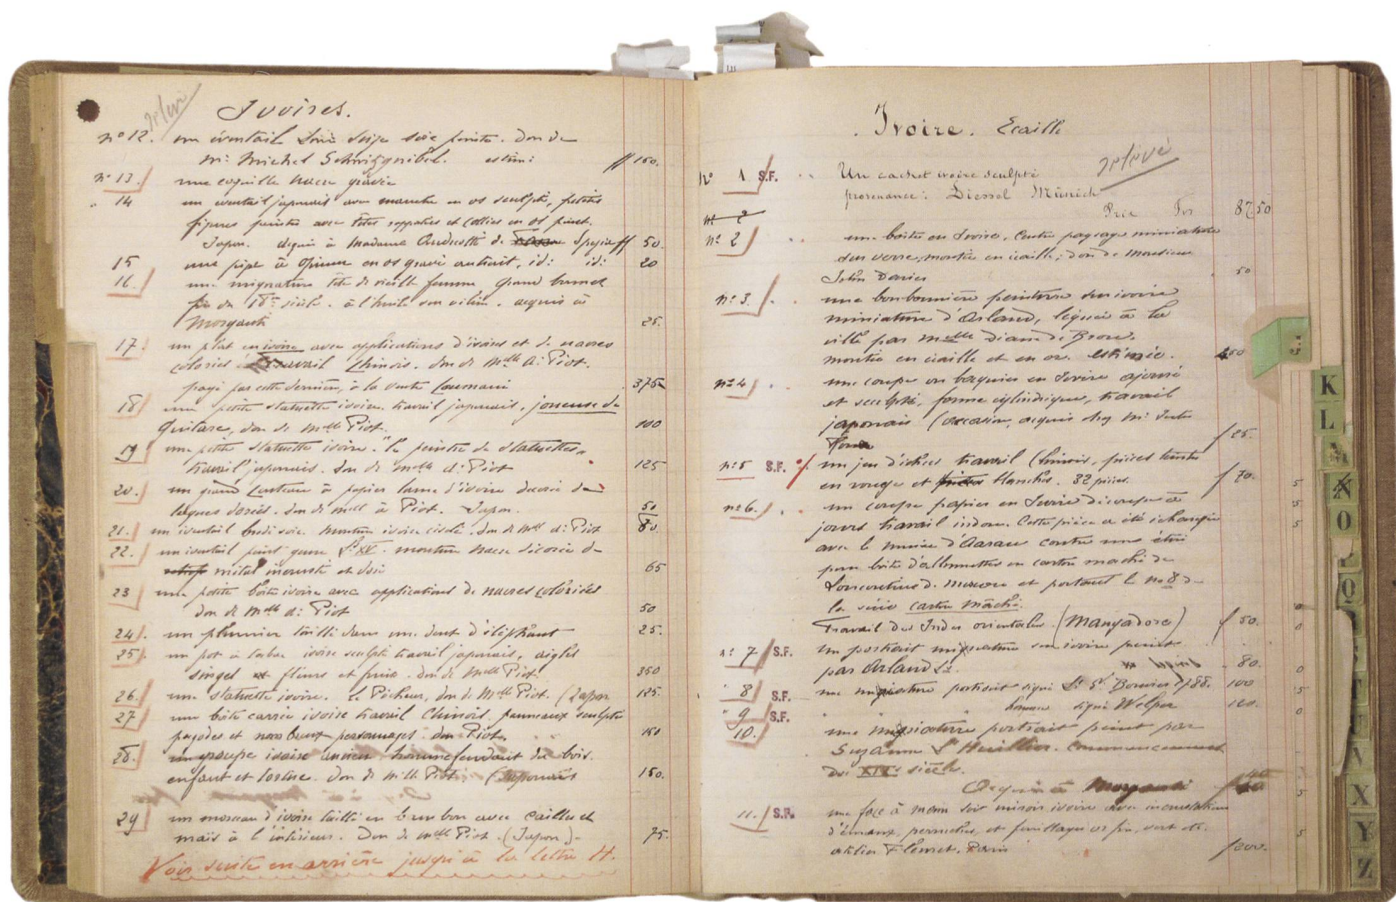 Ivoires.
relevé
n° 12. un éventail Louis Seize soie peinte. don de
M: Michel estim: ff 150.
n° 13. une coquille nacre gravée
14 un éventail japonais avec manche en os sculpté, petites
figures peintes avec têtes rapportées et collées en os peint.
Japon. acquis à Madame de Spezia ff 50.
15 une pipe à opium en os gravé id: id: 20
16. une mignature tête de vieille femme grand bonnet
du 18me siècle. à l'huile sur acquis à
Morganti 25.
17. un plat en ivoire avec applications d'ivoires et de nacres
coloriés travail Chinois. don de Mlle A: Piot.
payé par cette dernière, à la vente 375
18 une petite statuette ivoire travail japonais, joueuse de
Guitare, don de Mlle Piot. 100
19 une petite statuette ivoire. "le peintre de statuettes"
travail japonais. don de Mlle A: Piot 125
20. un grand couteau à papier lame d'ivoire décorée de
laques dorés. don de Mlle A Piot. Japon. 50
21. un éventail soie. monture ivoire ciselé. don de Mlle A: Piot 80.
22. un éventail peint genre Ls XV. monture nacre décorée de
métal incrusté et doré 65
23 une petite boîte ivoire avec applications de nacres coloriées
don de Mlle A: Piot 50
24. un plumier taillé dans une dent d'éléphant 25.
25. un pot à tabac ivoire sculpté travail japonais, aigles
singes et fleurs et fruits. don de Mlle Piot. 350
26. une statuette ivoire. Le Pêcheur, don de Mlle Piot. (Japon 125.
27 une boîte carrée ivoire travail Chinois. panneaux sculptés
pagodes et nombreux personnages. don Piot. 150
28. un groupe ivoire ancien homme fendant du bois.
enfant et tortue. Don de Mlle Piot. (Japonais 150.
29 un morceau d'ivoire taillé en bambou avec cailles et
maïs à l'intérieur. Don de Mlle Piot. (Japon) 75.
Voir suite en arrière jusqu'à la lettre H.
Ivoire. Ecaille
relevé
N° 1 S.F. Un cachet ivoire sculpté
provenance: Diessel Münich
Prix Frs 87 50
n° 2
n° 2 une boîte en Ivoire, Contre paysage miniature
sous verre, montée en écaille; don de Monsieur
John Davies 50
n° 3. une bonbonnière peinture sur ivoire
miniature d'Arlaud, léguée à la
ville par Mlle Diane de
montée en écaille et en or. estimée. 450
n° 4 une coupe ou baguier en Ivoire ajouré
et sculpté, forme cylindrique, travail
japonais (occasion, acquis chez Mr
f 25.
n° 5 S.F. un jeu d'échecs travail Chinois, pièces teintes
en rouge et blanches. 32 pièces. f 70.
n° 6. un coupe papier en Ivoire découpé à
jours travail indou. Cette pièce a été échangée
avec le musée d'Aarau contre une
boîte d'allumettes en carton maché de
et portant le no 8 de
la série carton mâché.
Travail des Indes orientales (Mangadore) f 50.
n° 7 S.F. un portrait miniature sur ivoire peint
par Arlaud Ls. 80.
8 S.F. une miniature portrait signé St Bourier 1788. 100
9 S.F. homme signé Welper 120.
10. une miniature portrait peint par
Suzanne L'Huillier. Commencement
du XIXe siècle.
Acquis à Morganti
11. S.F. une face à main soit miroir ivoire avec incrustations
d'émaux, perruches, et feuillages or fin, sort de
atelier Paris f 200.
K
L
M
N
O
Q
T
X
Y
Z